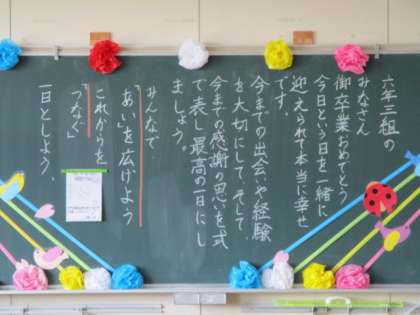 六年三組の
みなさん
御卒業おめでとう
今日という日を一緒に
迎えられて本当に幸せ
です。
今までの出会いや経験
を大切にして、そして
今までの感謝の思いを式
で表し、最高の一日にし
ましょう。
みんなで
「あい」を広げよう
これからを
「つなぐ」
一日としよう。